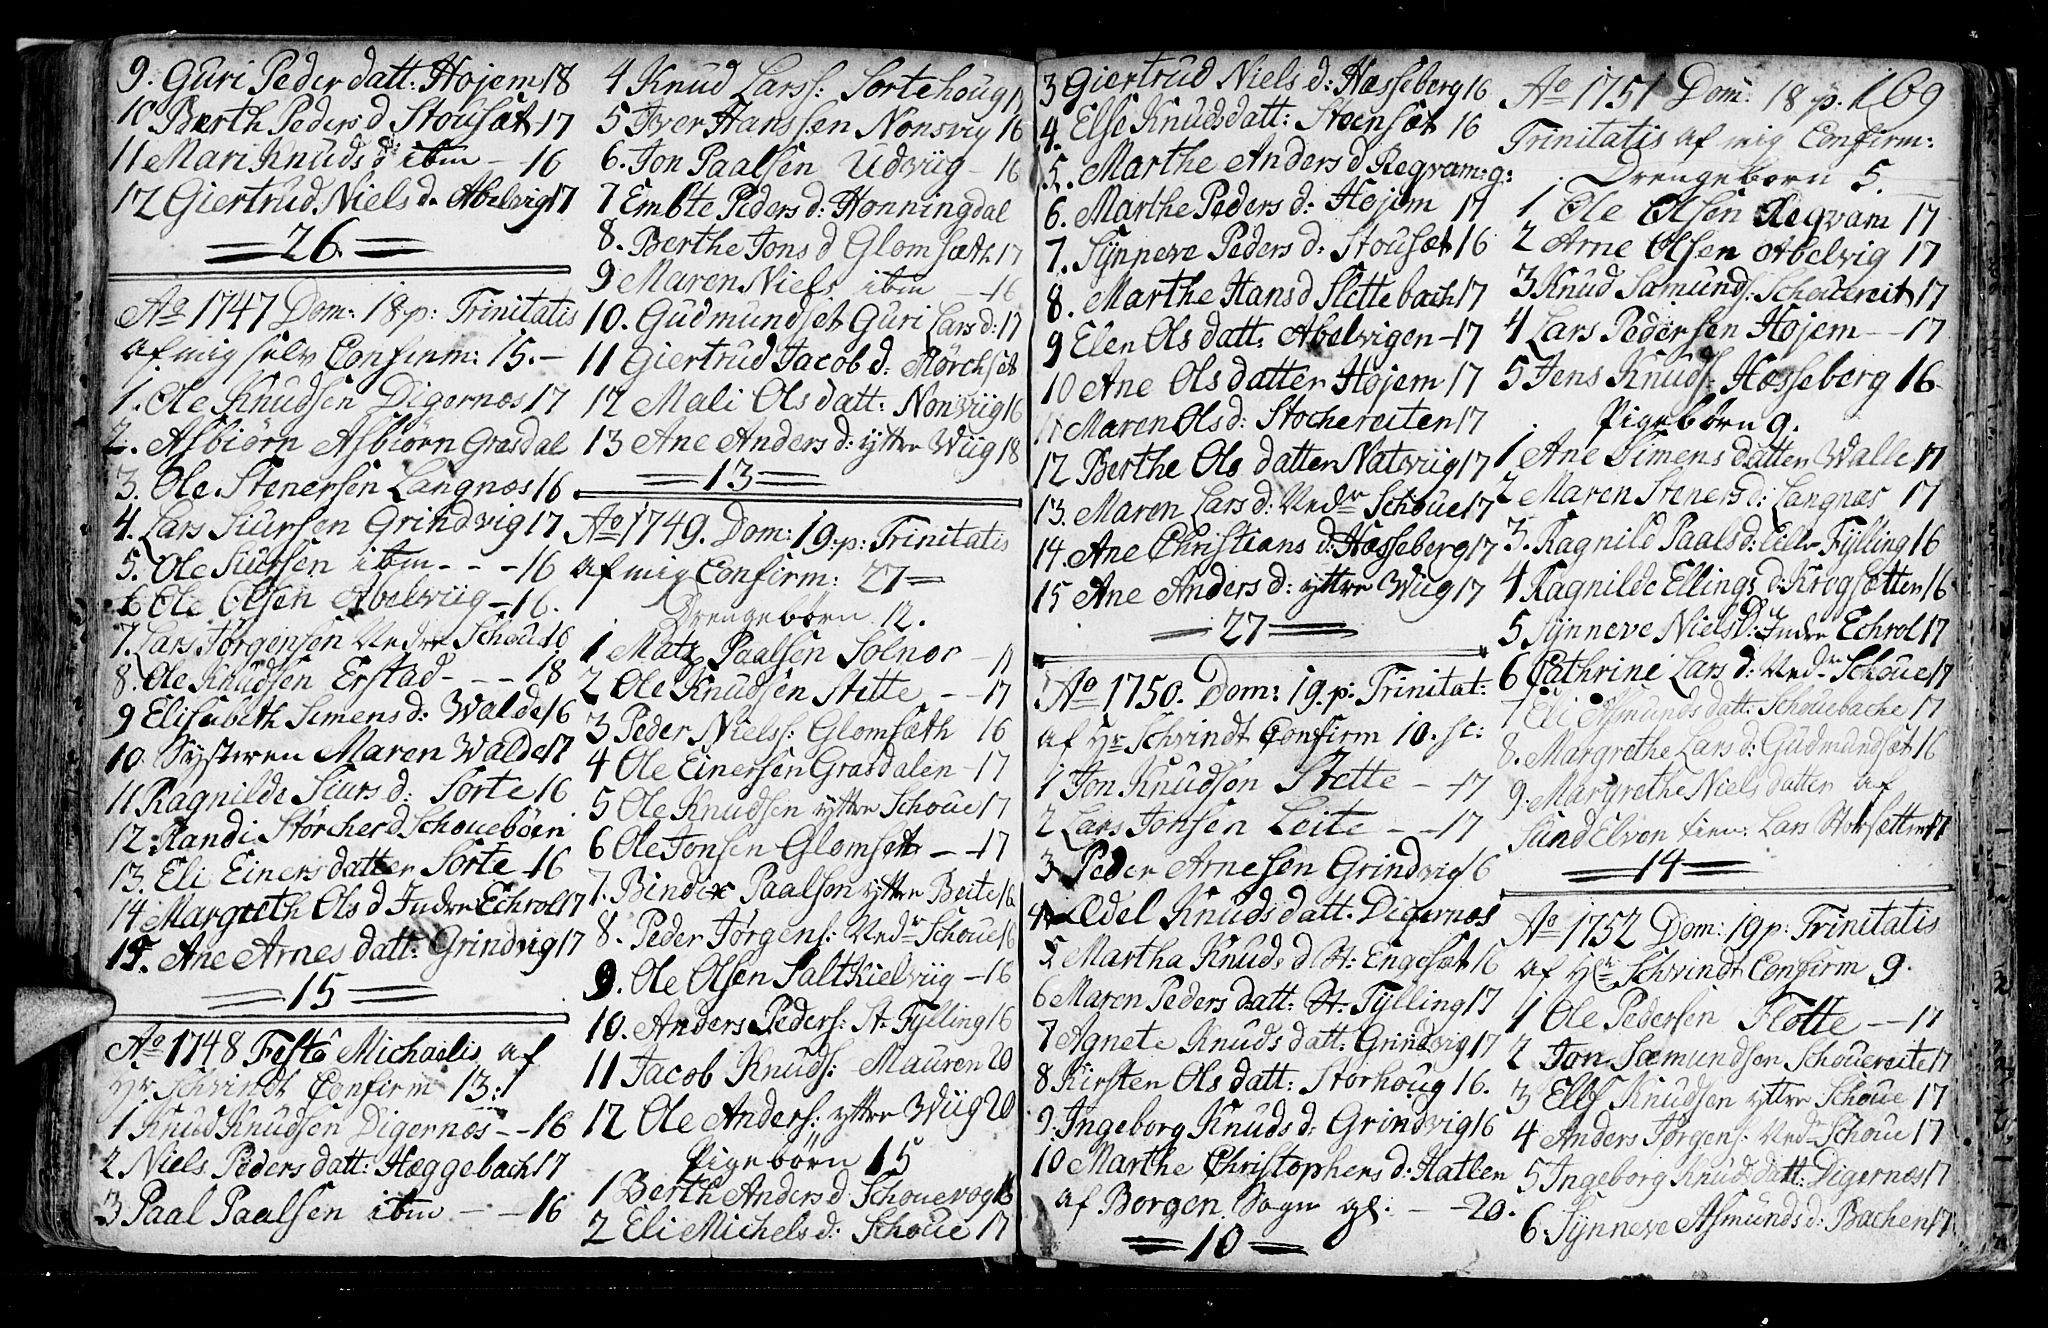 9. Guri Peder datt: Højem 18
10 Berth Peders d Stousæt 17
11 Mari Knuds d: ibm - 16
12 Giertrud Niels d. Abelvig 17
26
Ao 1747 Dom: 18 p: Trinitatis
af mig selv Confirm: 15. -
1. Ole Knudsen Digernæs 17
2. Asbiørn Asbiørn Grasdal
3. Ole Stenersen Langnæs 16
4. Lars Siursen Grindvig 17
5. Ole Siursen ibm - - - 16
6 Ole Olsen Abelviig - 16.
7. Lars Jørgensen Nedre Schoue 16
8. Ole Knudsen Erstad - - - 18
9 Elisabeth Simens d: Walde 16
10 Systeren Maren Walde 17
11 Ragnilde Siurs d: Sorte 16
12. Randi Storcher d Schouebøen
13. Eli Einers datter Sorte - 16
14 Margreth Ols d Indre Echrol 17
15. Ane Arnes datt: Grindvig 17
15
Ao 1748 Festo Michaelis af
Hr Schvindt Confirm 13:
1 Knud Knudsen Digernæs - - 16
2 Niels Peders datt: Hæggebach 17
3 Paal Paalsen ibm - - 16
4 Knud Larss: Sortehoug 17
5 Iver Hanssen Nonsvig 16
6. Jon Paalsen Udviig - 16
7 Embte Peders d: Honningdal
8. Berthe Jons d Glomsæth 17
9 Maren Niels ibm - 16
10. Gudmundset Guri Lars d: 17
11 Giertrud Jacob d: Mörchset
12 Mali Ols datt: Nonviig 16
13 Ane Anders d: yttre Wiig 18
13
Ao 1749. Dom: 19. p: Trinitatis
af mig Confirm: 27
Drengebörn 12.
1 Matz Paalsen Solnor - 17
2 Ole Knudsen Stette - - 17
3 Peder Nielss: Glomsæth 16
4 Ole Einersen Grasdalen - 17
5 Ole Knudsen yttre Schoue 17
6 Ole Jonsen Glomset - - 17
7. Bendix Paalson yttre Beite 16
8. Peder Jørgens: Nedr Schoue 16
9. Ole Olsen Saltkielviig - 16
10. Anders Peders: St: Fylling 16
11 Jacob Knuds: Mauren 20
12 Ole Anders: yttre Wiig 20
Pigebörn 15
1 Berth Anders d Schouevog 18
2 Eli Michels d: Schoue 17
3 Giertrud Niels d: Hæsseberg 16
4. Else Knuds datt: Steensæt 16
5. Marthe Anders d Reqvam: g:
6. Marthe Peders d: Højem 17
7. Synneve Peders d: Stousæt 16
8. Marthe Hans d Slettebach 17
9 Elen Ols datt: Abelvigen - 17
10 Ane Ols datter Højem 17
11 Maren Ols d: Stochereiten 17
12 Berthe Ols datter Natviig 17
13. Maren Lars d: Nedr Schoue 17
14 Ane Christians d: Hæsseberg 17
15 Ane Anders d: yttre Wiig 17
27
Ao 1750. Dom: 19. p: Trinitat:
af Hr Schvindt Confirm 10. sc:
1 Jon Knudsøn Stette - - 17
2 Lars Jonsen Leite - - 17
3 Peder Arnesen Grindvig 16
4 Edel Knuds datt. Digernæs
5 Martha Knuds d St: Engesæt 16
6 Maren Peders datt: St: Fylling 17
7 Agnete Knuds datt: Grindvig 17
8 Kirsten Ols datt: Storhoug 16.
9. Ingeborg Knuds d: Grindvig 16
10 Marthe Christophers d: Hatlen
af Borgen Sogn gl. - - 20.
10
169
Ao 1751 Dom: 18 p:
Trinitatis af mig Confirm:
Drengeborn 5.
1 Ole Olsen Reqvam 17
2 Arne Olsen Abelvig 17
3 Knud Samunds: Schouereit 17
4 Lars Pedersen Højem - - 17
5 Jens Knuds: Hæsseberg 16
Pigebörn 9.
1 Ane Simens datter Walle 17
2 Maren Steners d: Langnæs 17
3. Ragnild Paals d: Lille Fylling 16
4 Ragnilde Ellings d: Krogsætter 16
5 Synneve Niels D: Indre Echrol 17
6 Cathrine Lars d: Nedr Schoue 17
7 Eli Asmunds datt: Schouebache 17
8. Margrethe Lars d: Gudmundsæt 16
9. Margrethe Niels datter af
Sund Elven tien: Lars Storsetter 17
14
Ao 1752 Dom: 19 p: Trinitatis
af Hr Schvindt Confirm 9.
1 Ole Pedersen Flotte - - 17
2 Jon Sæmundsen Schouereite 17
3 Ells Knudsen yttre Schoue 17
4 Anders Jørgens: Nedr Schoue 17
5 Ingeborg Knuds datt: Digernæs 17
6. Synneve Asmunds d: Bachen 17